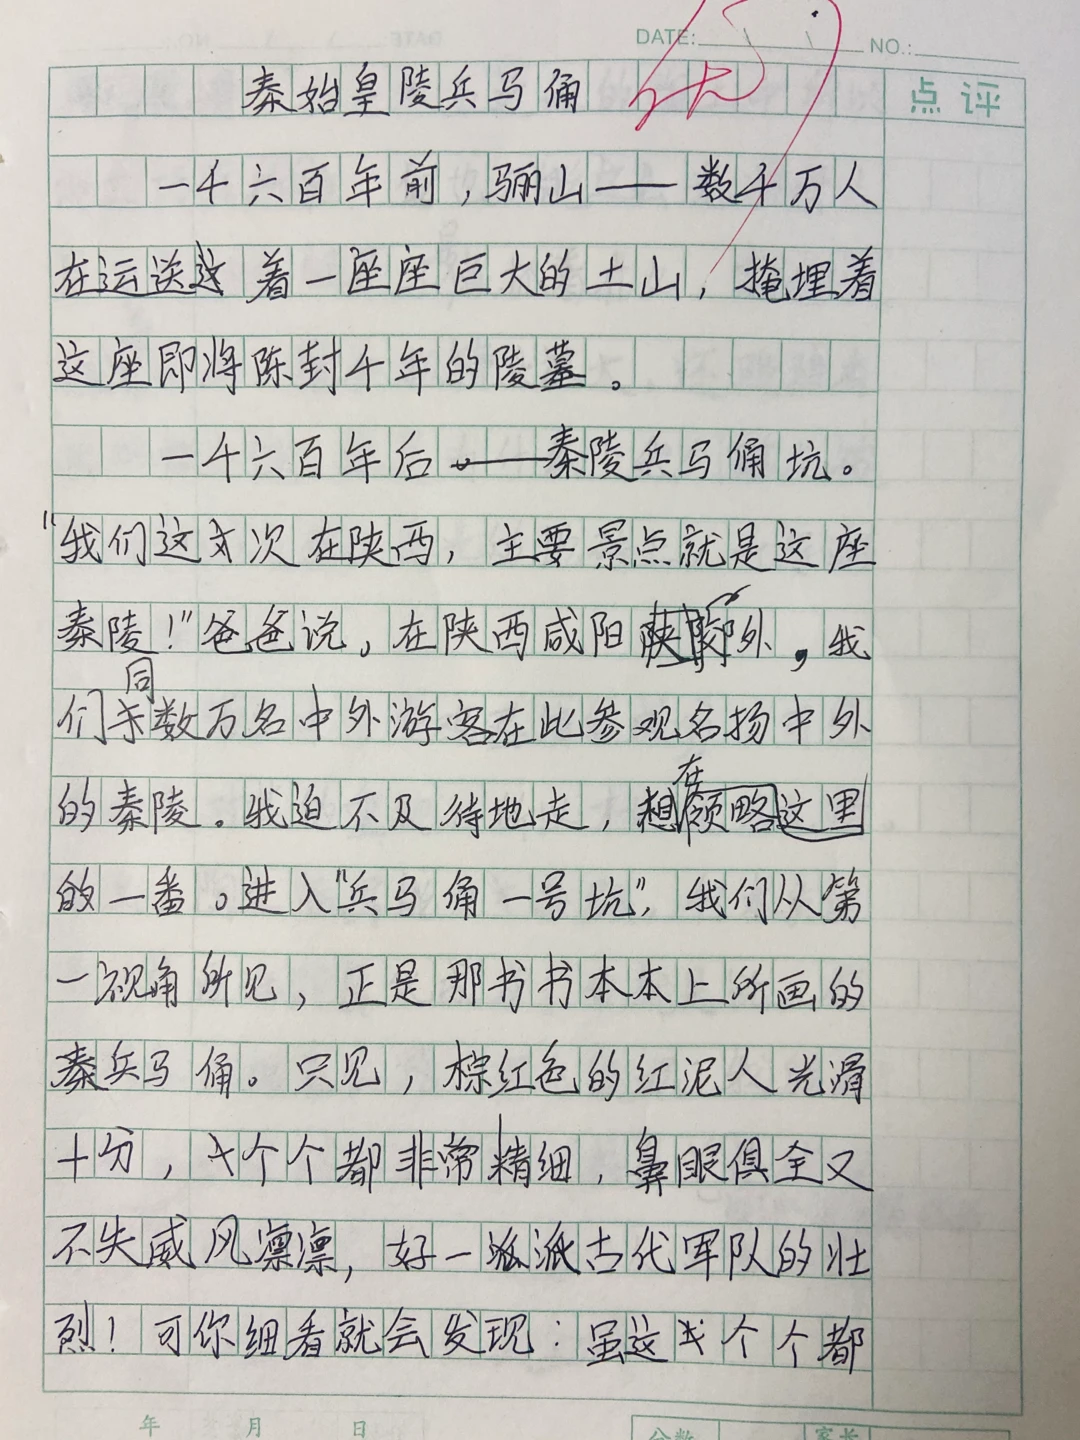 DATE: NO.:
秦始皇陵兵马俑
点评
一千六百年前，骊山——数千万人
在运送着一座座巨大的土山，掩埋着
这座即将陈封千年的陵墓。
一千六百年后——秦陵兵马俑坑。
"我们这次在陕西，主要景点就是这座
秦陵！"爸爸说。在陕西咸阳郊外，我
们同数万名中外游客在此参观名扬中外
的秦陵。我迫不及待地走，想在这里领略
的一番。进入"兵马俑一号坑"，我们从第
一视角所见，正是那书书本本上所画的
秦兵马俑。只见，棕红色的红泥人光滑
十分，个个都非常精细，鼻眼俱全又
不失威风凛凛，好一派古代军队的壮
烈！可你细看就会发现：虽这个个都
年 月 日
分数 家长